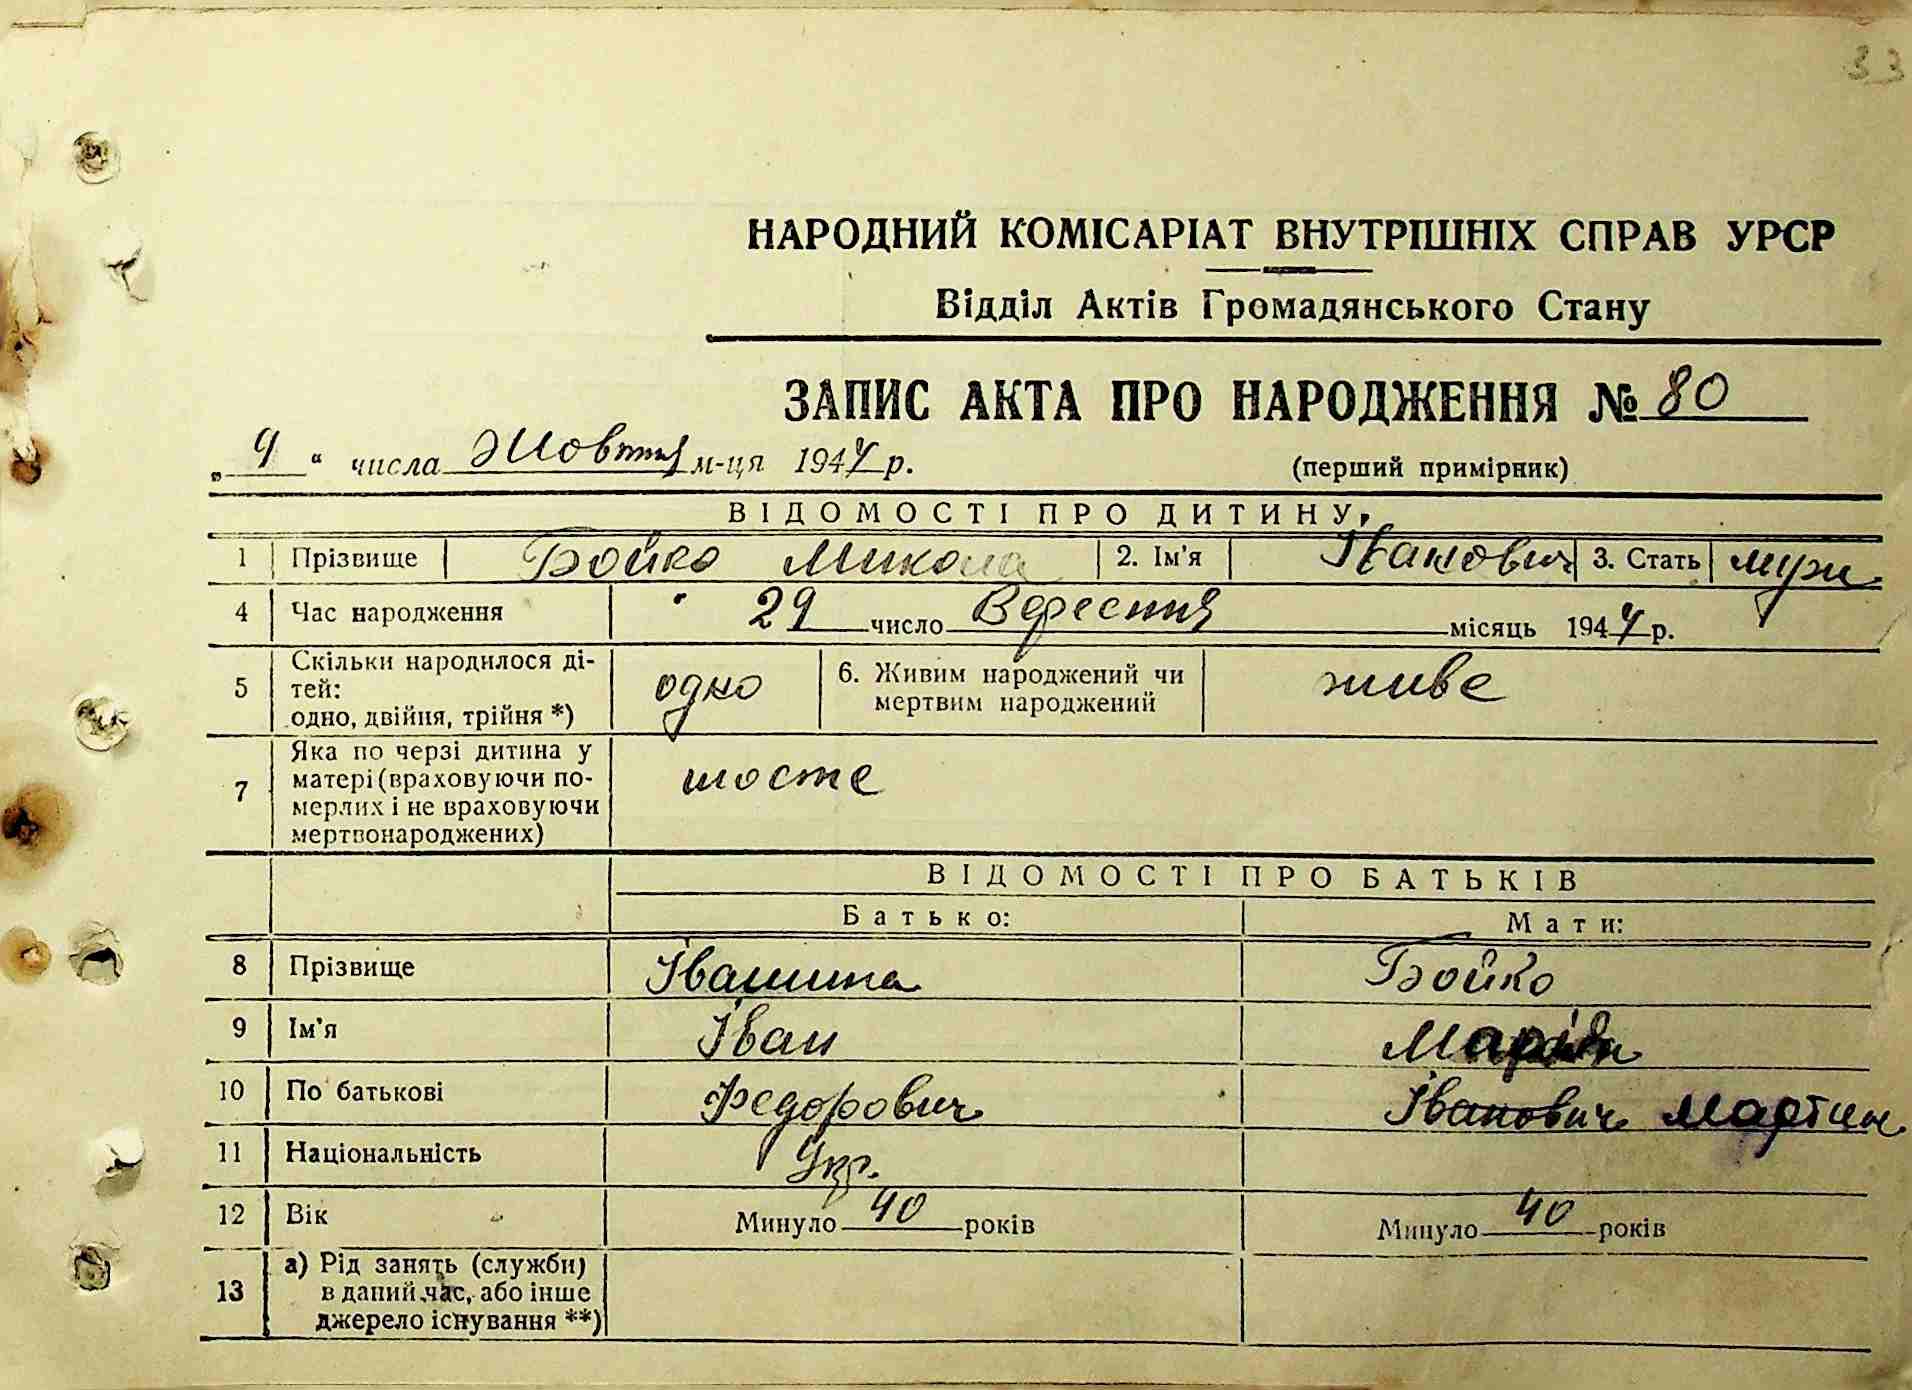 33
НАРОДНИЙ КОМІСАРІАТ ВНУТРІШНІХ СПРАВ УРСР
Відділ Актів Громадянського Стану
ЗАПИС АКТА ПРО НАРОДЖЕННЯ № 80
„ 9 “ числа Жовтня м-ця 1944 р. (перший примірник)
ВІДОМОСТІ ПРО ДИТИНУ
1 Прізвище Бойко Микола 2. Ім'я Іванович 3. Стать муж
4 Час народження 29 число Вересня місяць 1944 р.
5 Скільки народилося ді-
тей:
одно, двійня, трійня *) одно 6. Живим народжений чи
мертвим народжений живе
7 Яка по черзі дитина у
матері (враховуючи по-
мерлих і не враховуючи
мертвонароджених) шосте
ВІДОМОСТІ ПРО БАТЬКІВ
Батько: Мати:
8 Прізвище Івашина Бойко
9 Ім'я Іван Марія
10 По батькові Федорович Іванович Мартин
11 Національність Укр.
12 Вік Минуло 40 років Минуло 40 років
13 а) Рід занять (служби)
в даний час, або інше
джерело існування **)